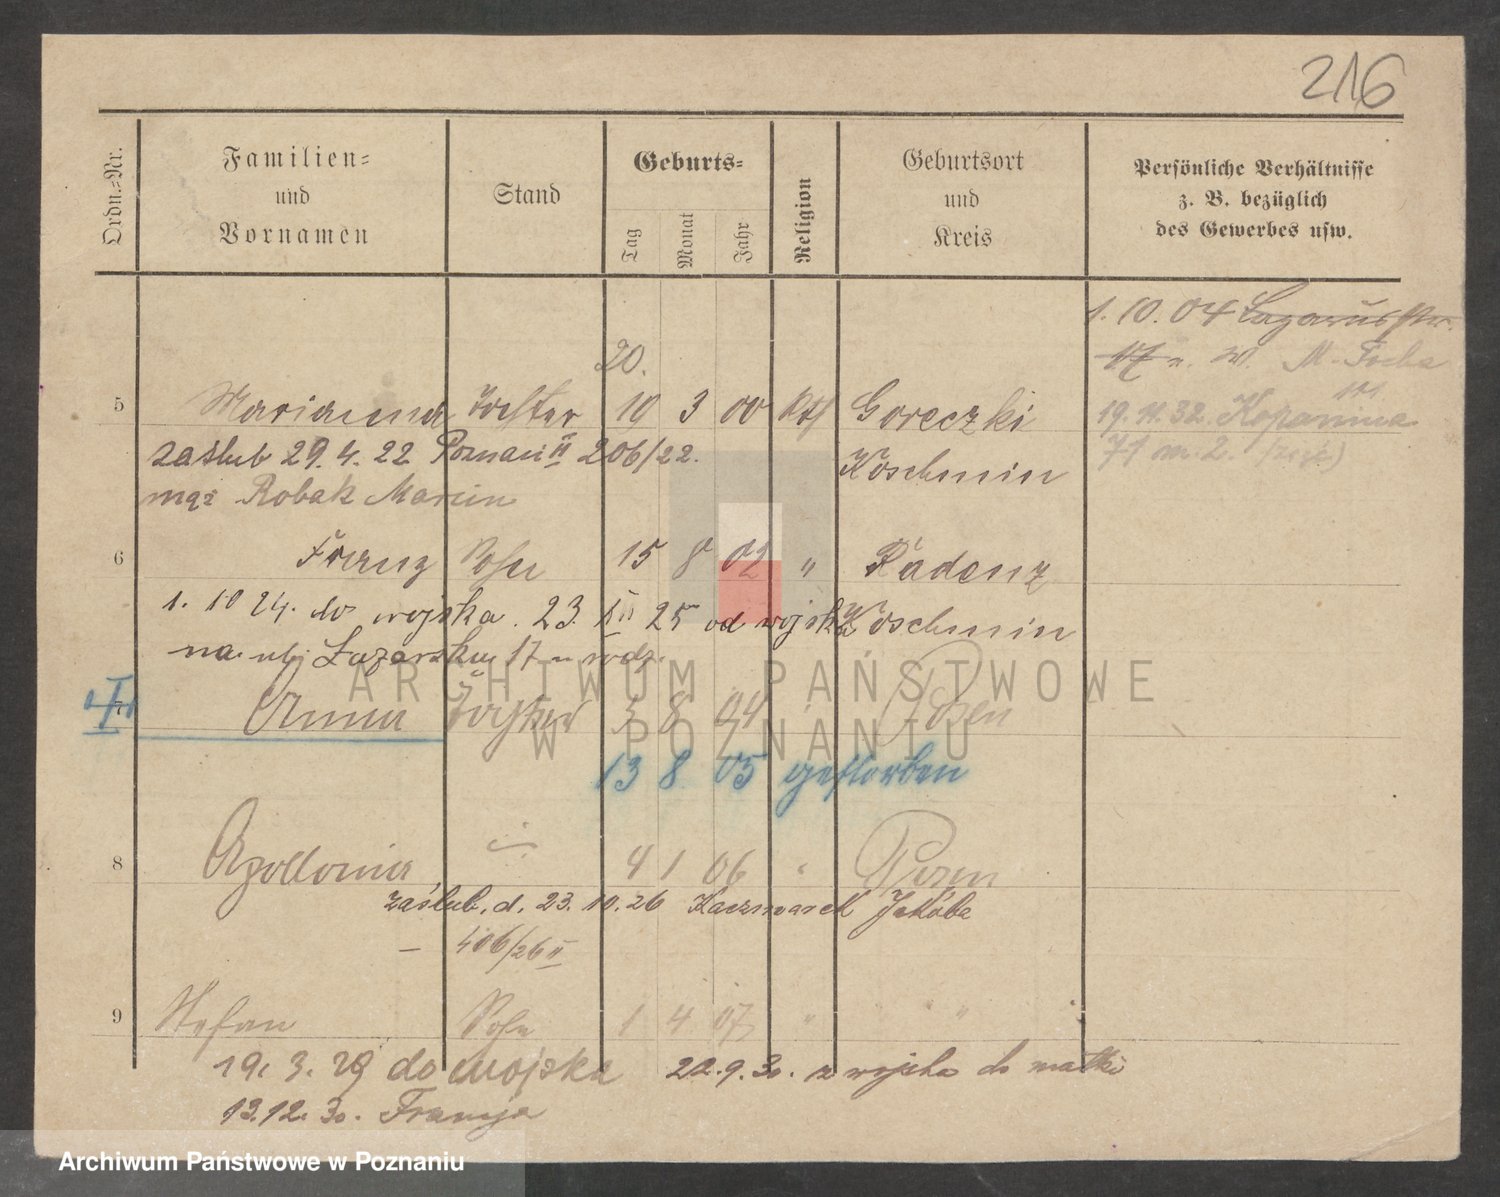 216
Ordn.-Nr.
Familien-
und
Vornamen
Stand
Geburts-
Tag
Monat
Jahr
Religion
Geburtsort
und
Kreis
Persönliche Verhältnisse
z. B. bezüglich
des Gewerbes usw.
1. 10. 04 Lazarusstr.
17 W. M. Focha
20.
5 Marianna Tochter 10 3 00 Kth Goreczki
19. 11. 32. Kopanina
zaślub 29. 4. 22 Poznań II 206/22. Koschmin
71 m. 2.
mąż Robak Marcin
6 Franz Sohn 15 8 02 " Radenz
1. 10 24. do wojska. 23. XII 25 od wojska Koschmin
na ul. Lazarska 17 u rodz.
7 Anna Tochter 5 8 04 Posen
13 8 05 gestorben
8 Apollonia 4 1 06 " Posen
zaślub. d. 23. 10. 26 Kaczmarek Jakóba
— 406/26 II
9 Stefan Sohn 1 4 07 " "
19. 3. 29 do wojska 22. 9. 30. z wojska do matki
13.12. 30. Francja
ARCHIWUM PAŃSTWOWE
W POZNANIU
Archiwum Państwowe w Poznaniu